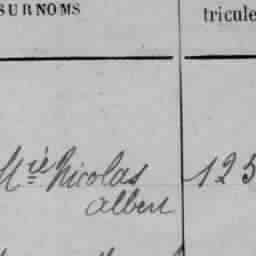 SURNOMS tricule
Mie Nicolas 125
Albert